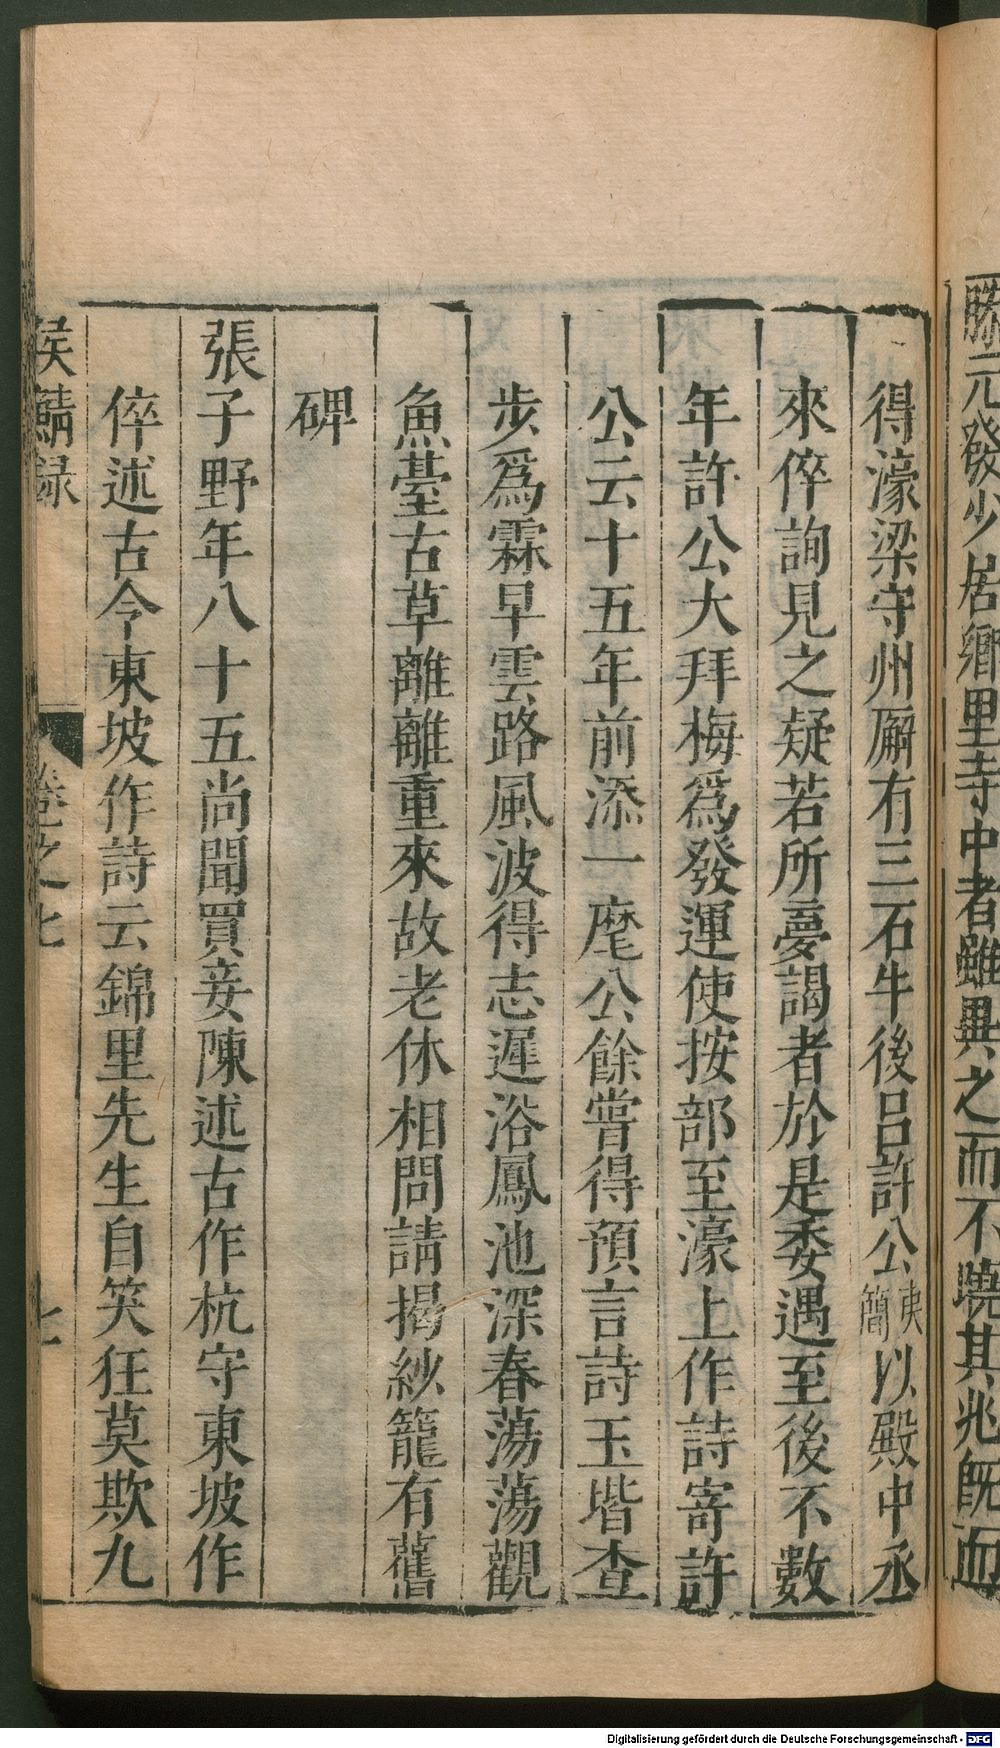 滕元發少居鄉里寺中者雖異之而不曉其兆旣而
得濠梁守州廨有三石牛後呂許公夷簡以殿中丞
來倅詢見之疑若所夢謁者於是委遇至後不數
年許公大拜梅爲發運使按部至濠上作詩寄許
公云十五年前添一麾公餘嘗得預言詩玉堦查
步爲霖早雲路風波得志遲浴鳳池深春蕩蕩觀
魚臺古草離離重來故老休相問請揭紗籠有舊
碑
張子野年八十五尚聞買妾陳述古作杭守東坡作
倅述古令東坡作詩云錦里先生自笑狂莫欺九
侯鯖録 卷之七 七
Digitalisierung gefördert durch die Deutsche Forschungsgemeinschaft - DFG